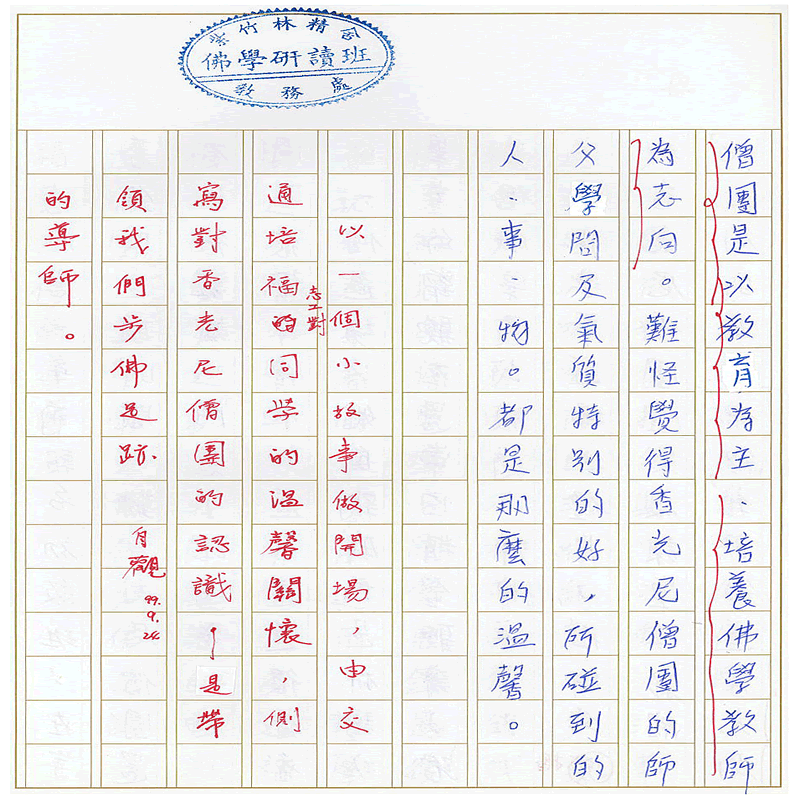 紫竹林精舍
佛學研讀班
教務處
僧團是以教育為主、培養佛學教師
為志向。難怪覺得香光尼僧團的師
父學問及氣質特別的好，所碰到的
人、事、物。都是那麼的溫馨。
以一個小故事做開場，由交
志工對
通培福的同學的溫馨關懷，側
寫對香光尼僧團的認識～是帶
領我們步佛足跡
的導師。
自觀
99.9.24